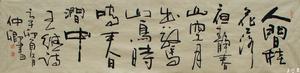 人閒桂
花落
夜靜春
山空月
出驚
山鳥時
鳴春
澗中
王維詩